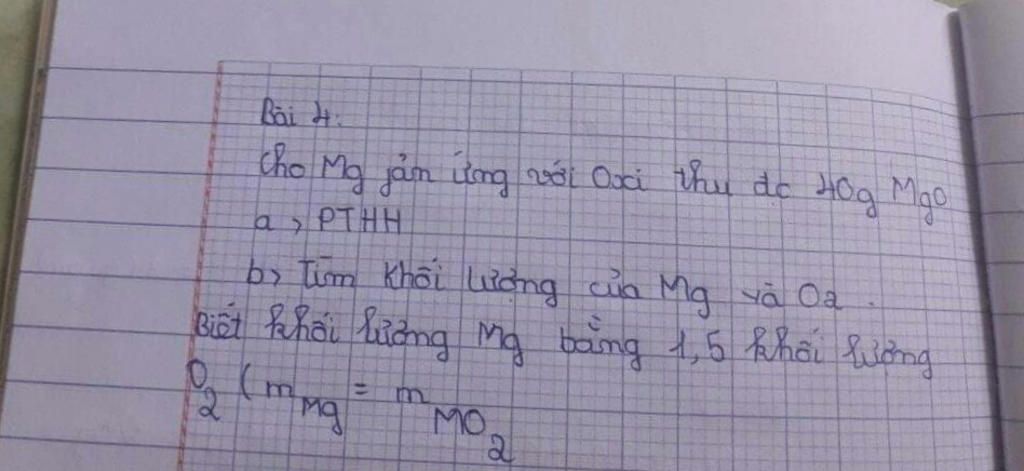 Bài 4:
Cho Mg fản ứng với Oxi thu đc 40g MgO
a, PTHH
b, Tìm khối lượng của Mg và O2.
Biết khối lượng Mg bằng 1,5 khối lượng
O2 (mMg = mMO2